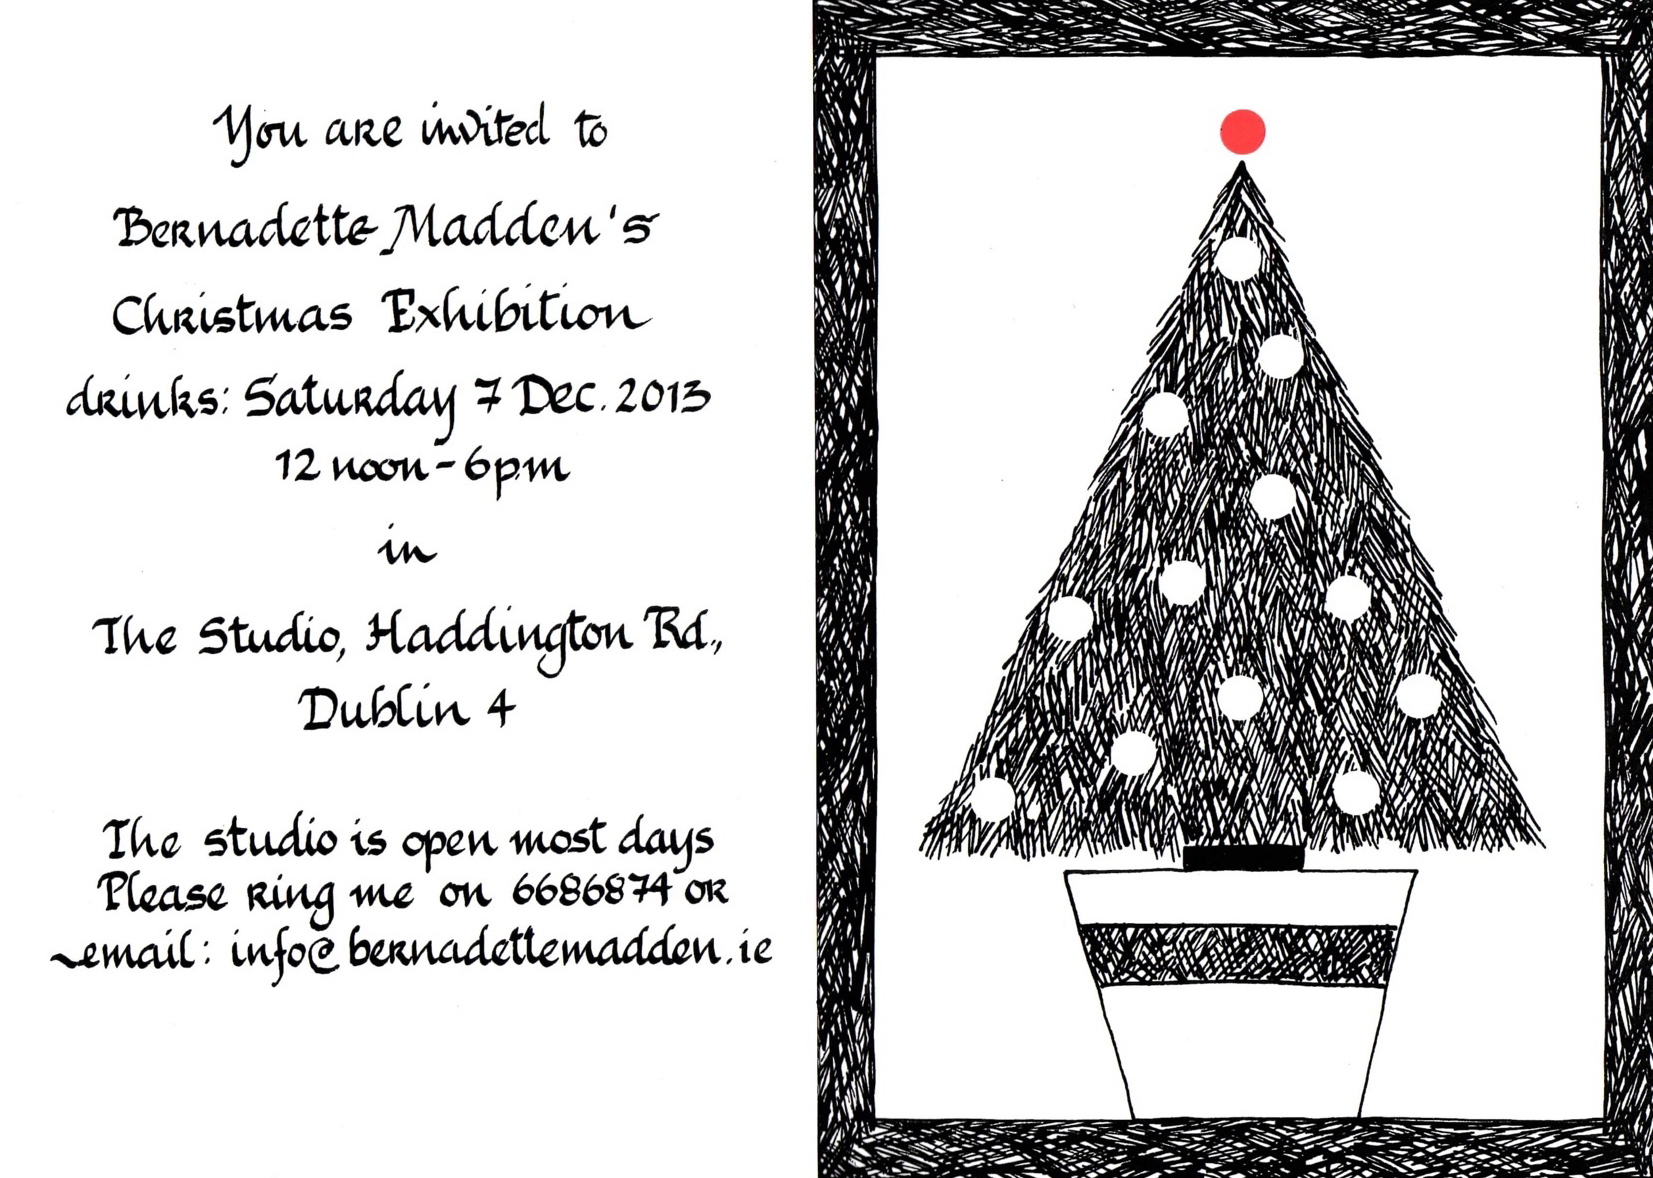 You are invited to
Bernadette Madden's
Christmas Exhibition
drinks: Saturday 7 Dec. 2013
12 noon - 6pm
in
The Studio, Haddington Rd.,
Dublin 4
The studio is open most days
Please ring me on 6686874 or
email: info@bernadettemadden.ie